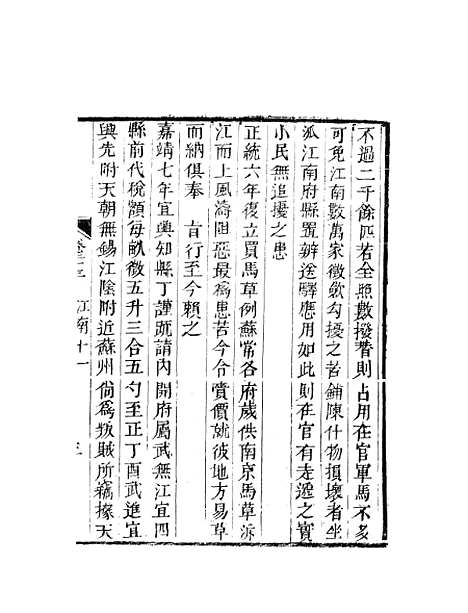 不過二千餘匹若全照數撥替則占用在官軍馬不多
可免江南數萬家徵歛勾擾之苦鋪陳什物損壞者坐
派江南府縣置辦送驛應用如此則在官有走遞之實
小民無追擾之患
正統六年復立買馬草例蘇常各府歲供南京馬草泝
江而上風濤阻惡最爲患苦今令賫價就彼地方易草
而納俱奉　旨行至今賴之
嘉靖七年宜興知縣丁謹疏請內開府屬武無江宜四
縣前代稅額每畝徵五升三合五勺至正丁酉武進宜
興先附天朝無錫江陰附近蘇州尚爲叛賊所竊據天
江南十一